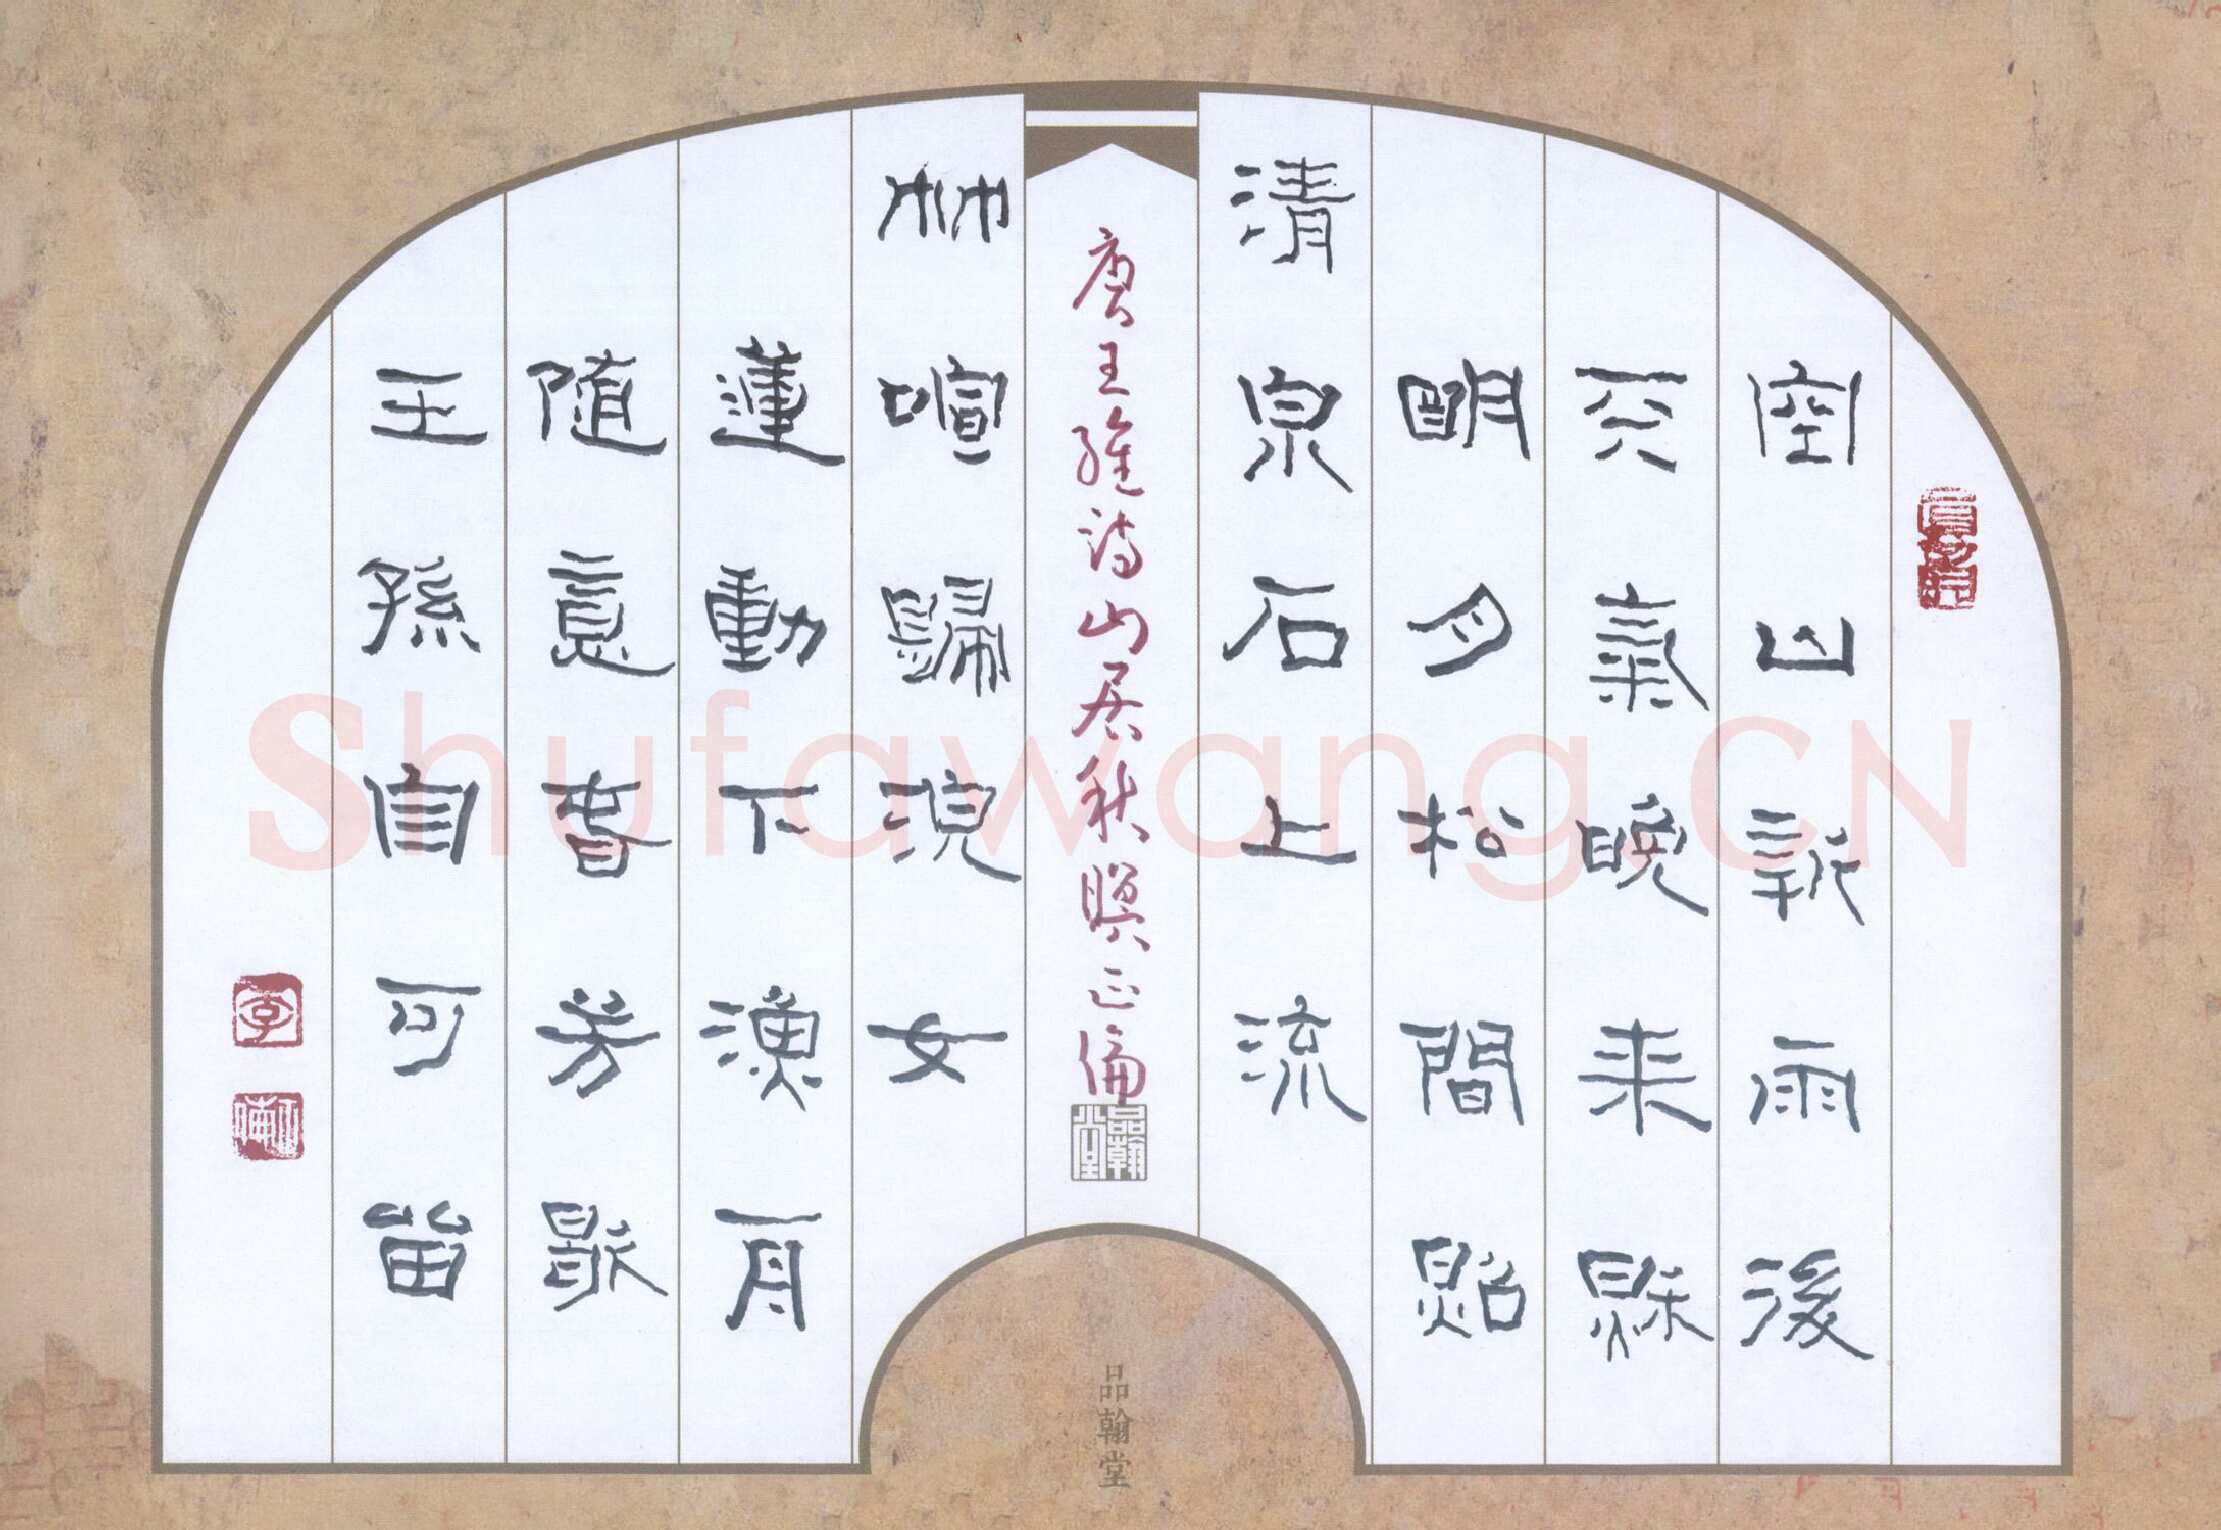 空山新雨後
天氣晚来秋
明月松間照
清泉石上流
唐王維詩山居秋暝正
品翰堂
竹喧歸浣女
蓮動下漁舟
随意春芳歇
王孫自可留
李
品翰堂
Shufawang.CN